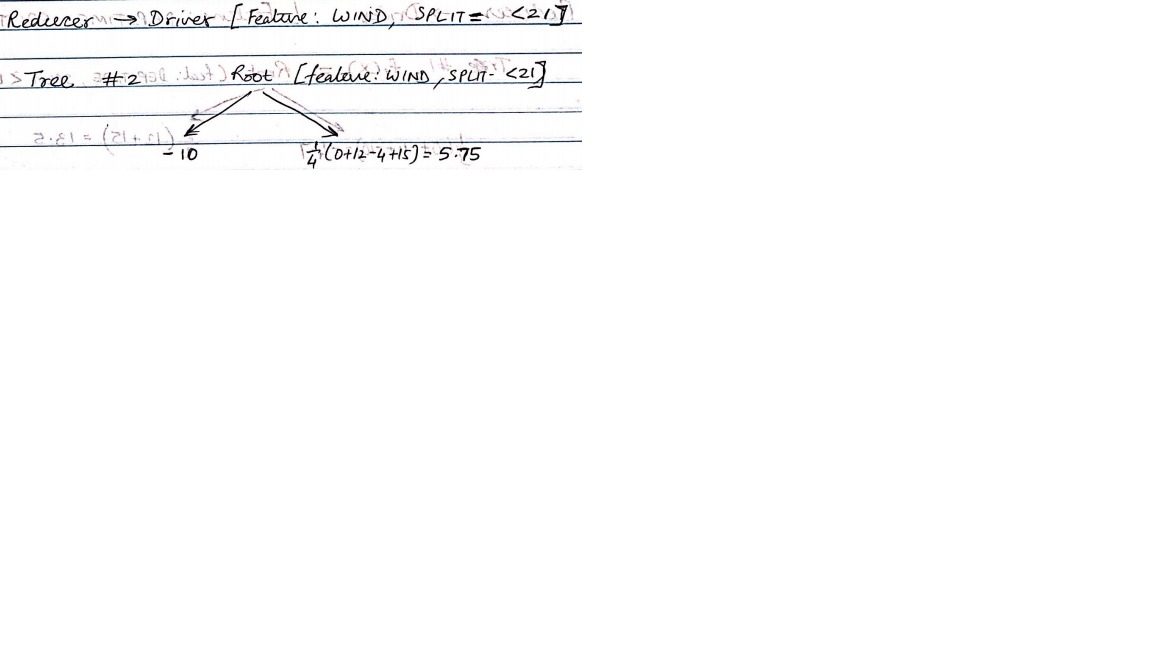 Reducer → Driver [Feature: WIND, SPLIT = <21]
Tree #2 Root [feature: WIND, SPLIT- <21]
-10 1/4 (0+12-4+15) = 5.75